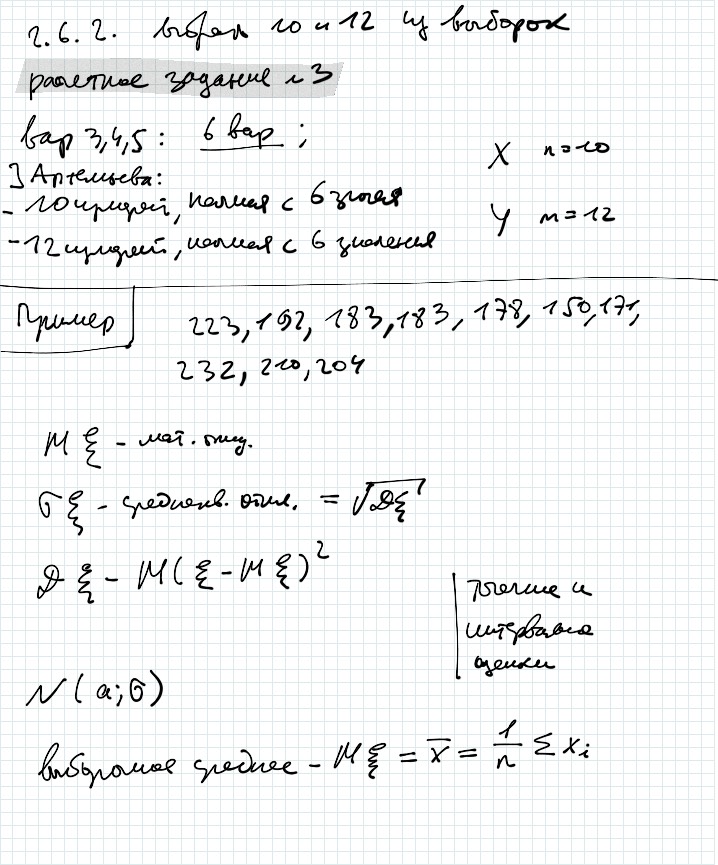 2.6.2. выбрал 10 и 12 из выборок
расчетное задание №3
вар 3,4,5: 6 вар;
X n=10
] Артемьева:
- 10 цифрей, начиная с 6 знач
Y m=12
- 12 цифрей, начиная с 6 значения
Пример
223, 192, 183, 183, 178, 150, 171,
232, 210, 204
Mξ - мат. ожид.
σξ - среднекв. откл. = √Dξ
Dξ - M(ξ - Mξ)²
точечные и
интервальные
оценки
N(a;σ)
выборочное среднее - Mξ = x̄ = 1/n Σ xᵢ